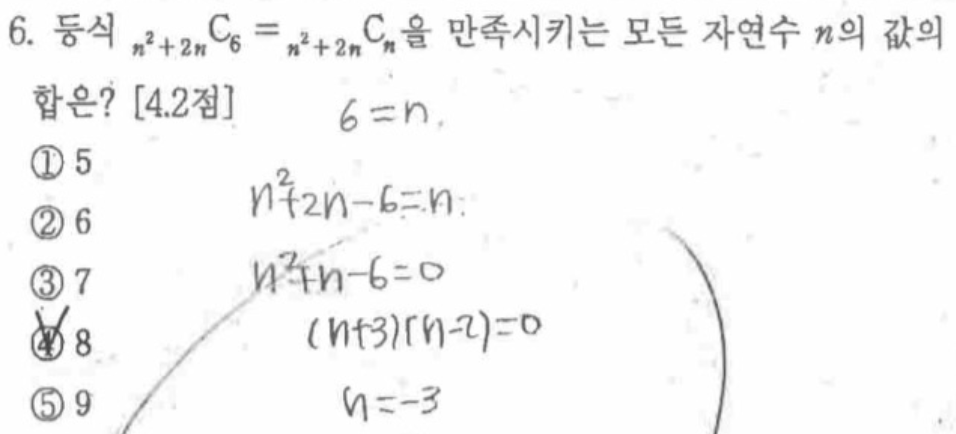 6. 등식 ₙ²₊₂ₙC₆ = ₙ²₊₂ₙCₙ을 만족시키는 모든 자연수 n의 값의
합은? [4.2점]
6=n.
① 5
n²+2n-6=n.
② 6
n²+n-6=0
③ 7
(n+3)(n-2)=0
④ 8
n=-3
⑤ 9